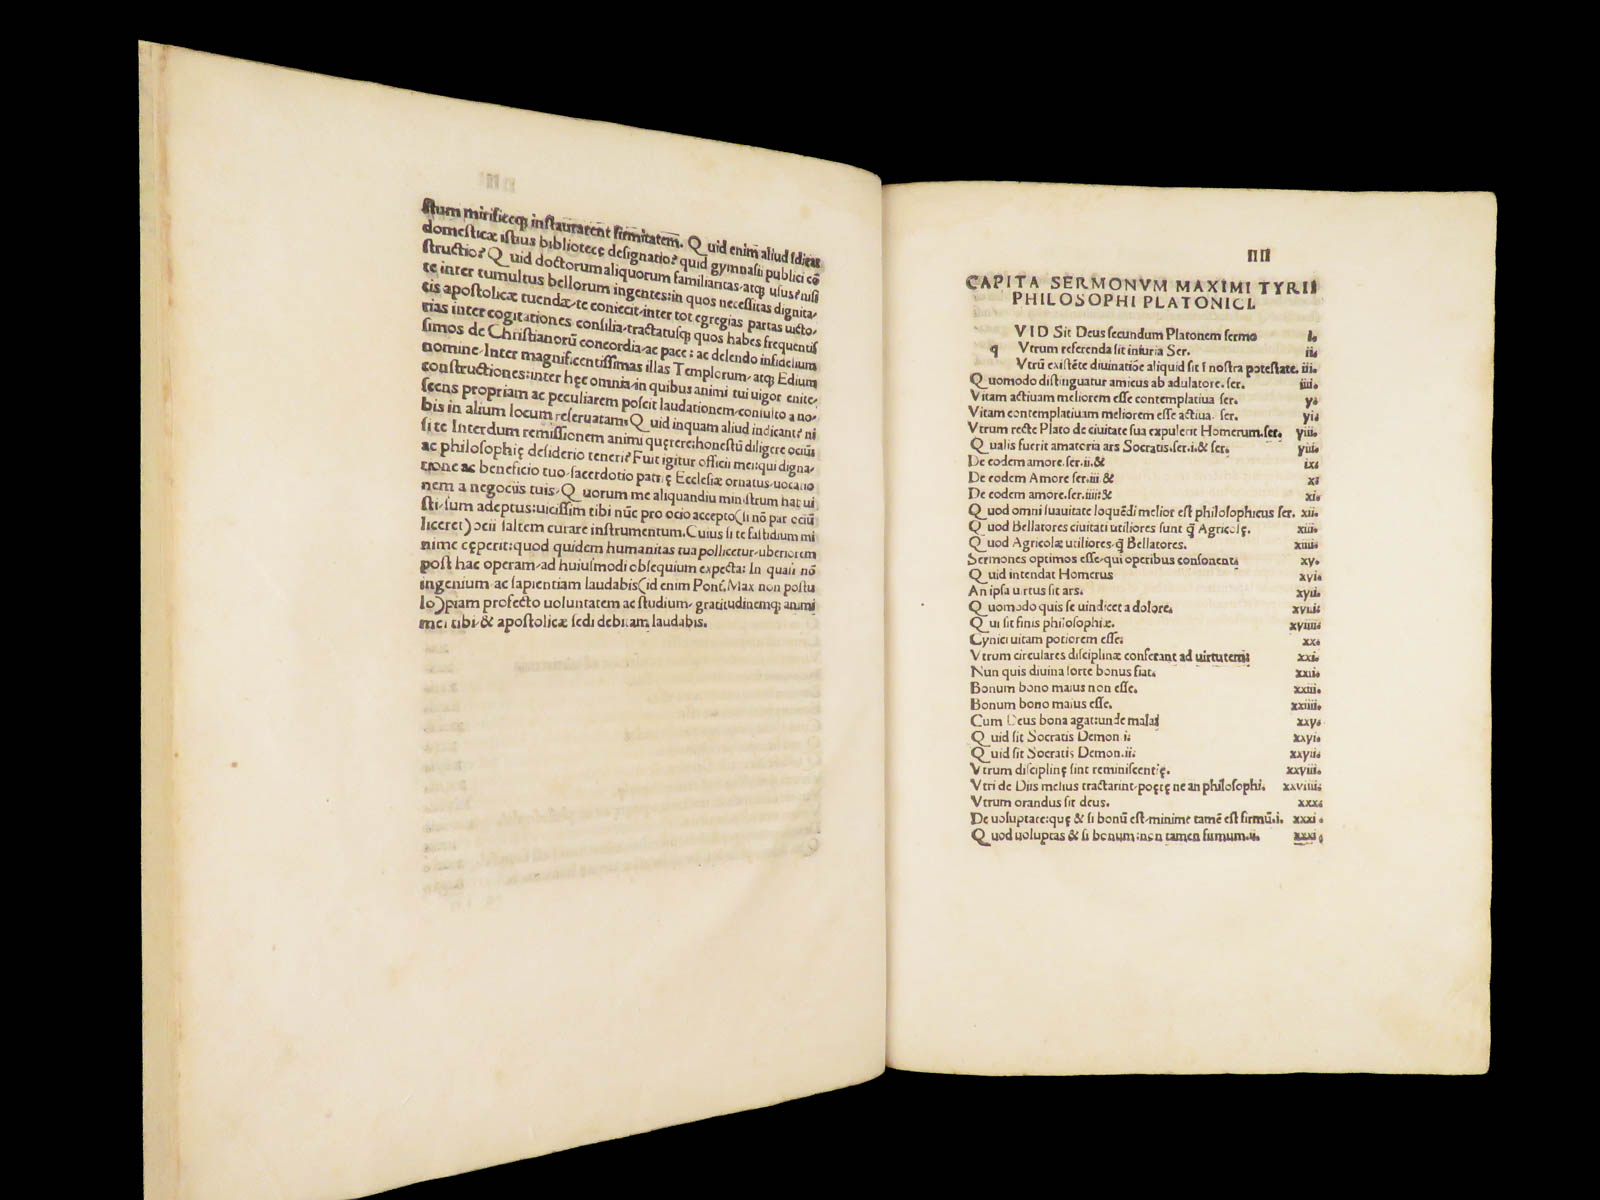 stum mirificeq; instaurarent firmitatem. Quid enim aliud
domesticæ istius bibliotecę designatio? quid gymnasii publici cō
structio? Quid doctorum aliquorum familiaritas, atq; usus? nisi
te inter tumultus bellorum ingentes: in quos necessitas dignita,
tis apostolicæ tuendæ, te coniecit, inter tot egregias partas uicto,
rias inter cogitationes, consilia, tractatusq; quos habes frequentis
simos de Christianorū concordia, ac pace: ac delendo infidelium
nomine, Inter magnificentissimas illas Templorum, atq; Edium
constructiones: inter hęc omnia, in quibus animi tui uigor enite,
scens propriam ac peculiarem poscit laudationem, consulto a no,
bis in alium locum reseruatam: Quid inquam aliud indicant? ni
si te Interdum remissionem animi quęrere: honestū diligere ociū:
ac philosophię desiderio teneri? Fuit igitur officii mei: qui digna,
tione ac beneficio tuo, sacerdotio patrię Ecclesiæ ornatus, uocatio
nem a negociis tuis, Quorum me aliquandiu ministrum hac ui
sti, sum adeptus: uicissim tibi nūc pro ocio accepto (si nō par ociū
liceret) ocii saltem curare instrumentum. Cuius si te fastidium mi
nime cęperit: quod quidem humanitas tua pollicetur, uberiorem
post hac operam, ad huiusmodi obsequium expecta: In quasi nō
ingenium ac sapientiam laudabis (id enim Pont. Max non postu
lo) piam profecto uoluntatem ac studium, gratitudinemq; animi
mei tibi, & apostolicæ sedi debitam laudabis.
IIII
CAPITA SERMONVM MAXIMI TYRII
PHILOSOPHI PLATONICI.
VID Sit Deus secundum Platonem sermo I.
q Vtrum referenda sit iniuria Ser. ii.
Vtrū existēte diuinatiōe aliquid sit I nostra potestate. iii.
Quomodo distinguatur amicus ab adulatore. ser. iiii.
Vitam actiuam meliorem esse contemplatiua ser. y.
Vitam contemplatiuam meliorem esse actiua. ser. yi.
Vtrum recte Plato de ciuitate sua expulerit Homerum. ser. yiii.
Qualis fuerit amatoria ars Socratis. ser. i. & ser. yiii.
De eodem amore. ser. ii. & ix.
De eodem Amore ser. iii & x.
De eodem amore. ser. iiii: & xi.
Quod omni suauitate loquēdi melior est philosophicus ser. xii.
Quod Bellatores ciuitati utiliores sunt q̃ Agricolę. xiii.
Quod Agricolæ utiliores, q̃ Bellatores. xiiii.
Sermones optimos esse, qui operibus consonent. xy.
Quid intendat Homerus xyi.
An ipsa uirtus sit ars. xyii.
Quomodo quis se uindicet a dolore. xyiii.
Qui sit finis philosophiæ. xyiiii.
Cynici uitam potiorem esse. xx.
Vtrum circulares disciplinæ conferant ad uirtutem. xxi.
Nun quis diuina sorte bonus fiat. xxii.
Bonum bono maius non esse. xxiii.
Bonum bono maius esse. xxiiii.
Cum Deus bona agat: unde mala? xxy.
Quid sit Socratis Demon i. xxyi.
Quid sit Socratis Demon. ii. xxyii.
Vtrum disciplinę sint reminiscentię. xxyiii.
Vtri de Diis melius tractarint, poętę ne an philosophi. xxviiii.
Vtrum orandus sit deus. xxx.
De uoluptate: quę & si bonū est, minime tamē est firmū. i. xxxi.
Quod uoluptas & si bonum: non tamen firmum. ii. xxxi